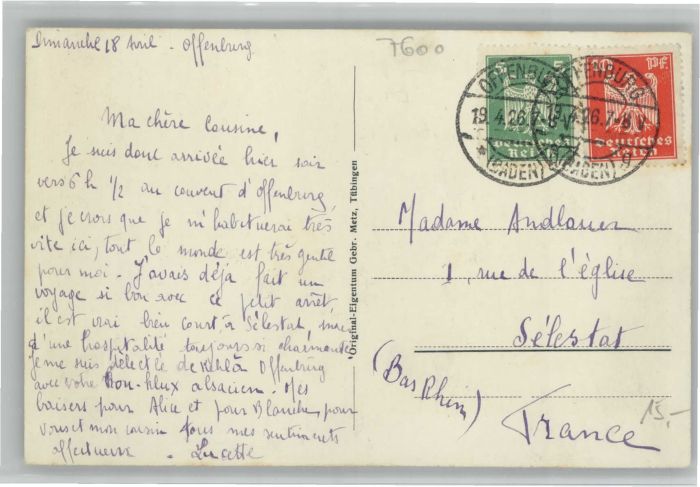 Dimanche 18 Avril - Offenburg
7600
Ma chère Cousine,
Je suis donc arrivée hier soir
vers 6h 1/2 au couvent d'Offenburg,
et je crois que je m'habituerai très
vite ici, tout le monde est très gentil
pour moi - J'avais déjà fait un
voyage si bon avec ce petit arrêt
il est vrai bien court, à Sélestat, mais
d'une hospitalité toujours si charmante
Je me suis délectée de Kehl à Offenburg
avec votre alsacien. Mes
baisers pour Alice et pour Blanche, pour
vous et mon cousin tous mes sentiments
affectueux - Lucette
Original-Eigentum Gebr. Metz, Tübingen
5 5
Deutsches
Reich
10 PF.
Deutsches
Reich
OFFENBURG
19.4.26.7-8
(BADEN)
OFFENBURG
19.4.26.7-8
(BADEN)
Madame Andlauer
1, rue de l'église
Sélestat
(Bas Rhin)
France
15.-